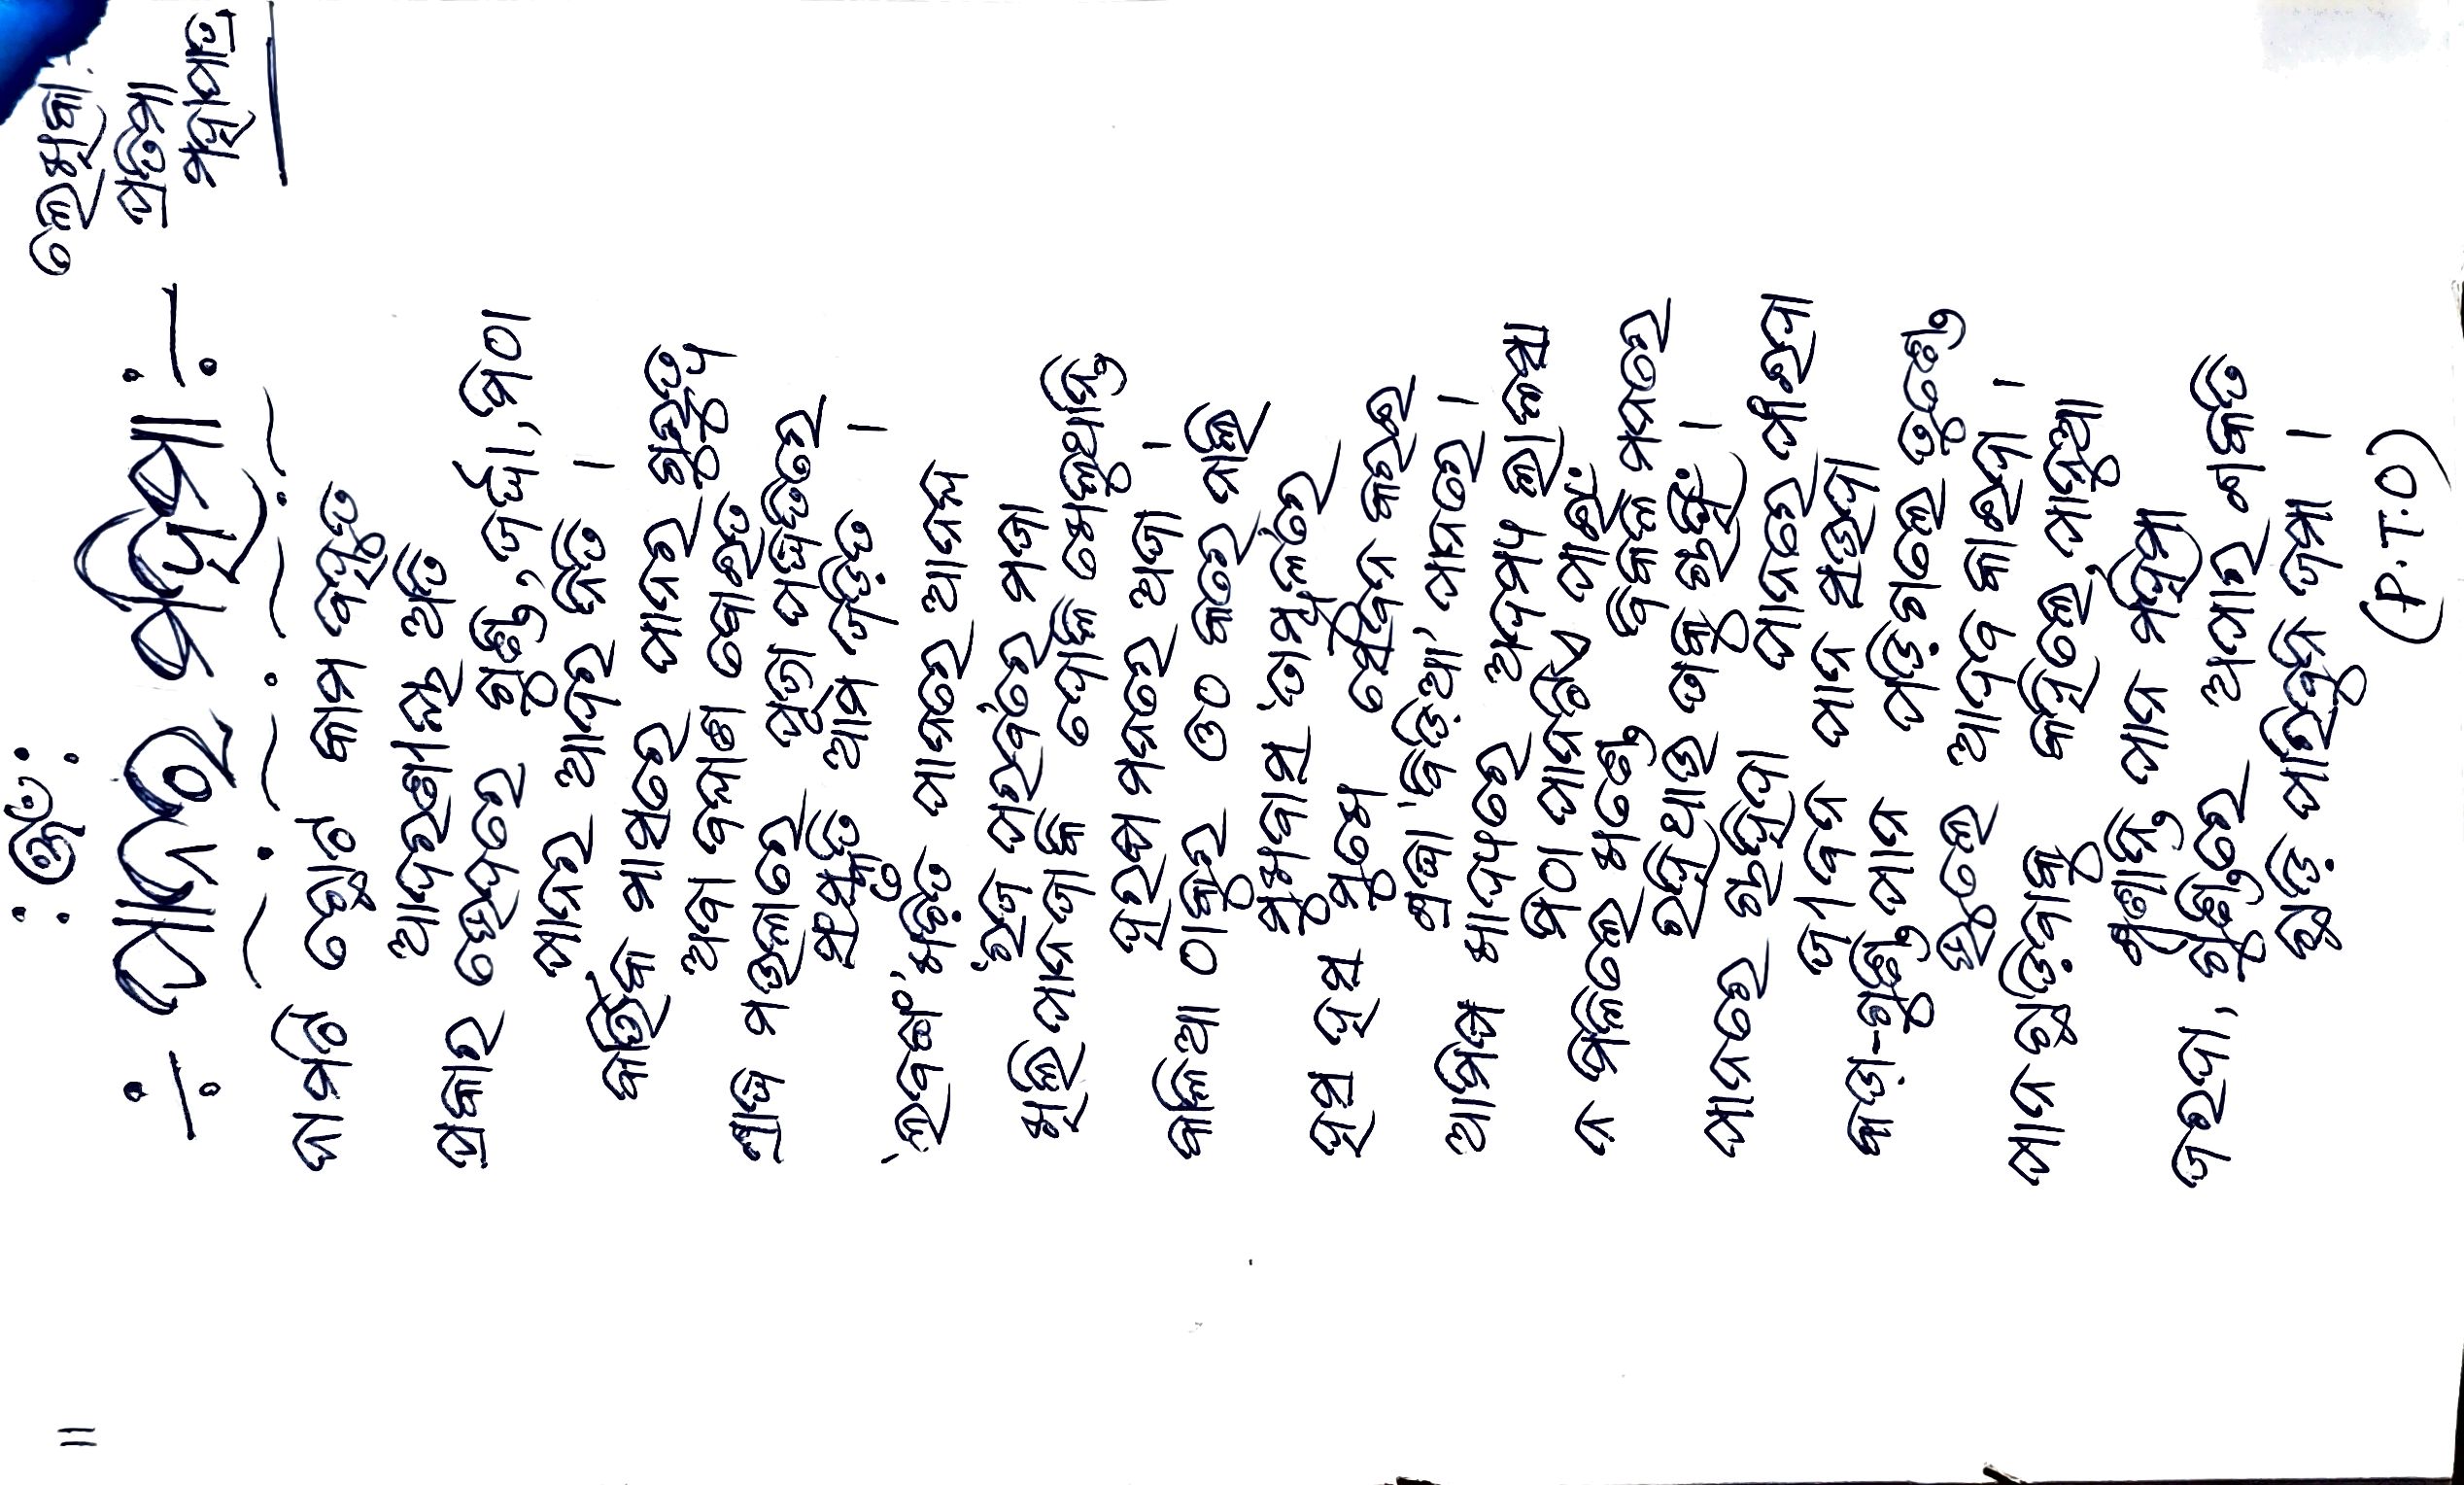 :ଓଁ:
ଲେଖିକା:
॥
ପ୍ରତିମା
ମହାପାତ୍ର
÷ ପାନର ମହିମା ÷
ନାମଟି ଛୋଟ କାମ ବହୁତ
ଆଦରଶୀଳା ଅତି
ପ୍ରକାର ଭେଦରେ ଗୁଣ୍ଡି, ଜର୍ଦ୍ଦା, ମିଠା
ପାନର ଆଦର ନିତି ।
କାର୍ତ୍ତିକ ମାସରେ ପାନର ଗୁରୁତ୍ୟ
ଅବା ବନ୍ଦାଣ ବୋଇତ
ଶ୍ରାଦ୍ଧ ମଉଳାରେ ପୂଜା ପଦ୍ଧତିରେ
ସଂସ୍କୃତି ଆମ ଜଡ଼ିତ ।
'ଲବଙ୍ଗ' ଖଚ଼ିତ ପାନରେ ଆନନ୍ଦ
'ରଜ ପରବ'ରେ ମଜା
ଖିଲିପାନ ଜାକି ଦୋଳି ଖେଳୁଥାନ୍ତି
ହରଷ ମନରେ ଅଜା ।
କାଳିଆ ଠାକୁର ଓଠ କରେ ନାଲି
ମୁଖବାସ 'ତାମ୍ବୁଳ'ରେ
ହସ ହସ ମୁଖେ ସେବନ କରଇ
ଶ୍ରଦ୍ଧା 'ବିଡ଼ିଆ' ପାନରେ ।
ଆମିଷ ଖାଦ୍ୟରେ ଅଦମ୍ୟ ଲାଳସା
ମିଠା ପାନଟିଏ ପାଇଁ
ନ ମିଳିଲେ ଖଣ୍ଡେ ବିକଳ ମନରେ
ରହିଥାଉ ତାକୁ ଚାହିଁ ।
ପାନରେ ଚାହିଦା ପାନରେ ଫାଇଦା
ଜୀବନ ପାନ ସଉଦା
କଡ଼ା-ଗୁଣ୍ଡି ପାନ ପଡ଼ିଗଲେ ତୁଣ୍ଡେ
ଭୁଲେ ଆଦବ କାଇଦା ।
ପାନ ଛାଡ଼ିବାକୁ କହିଲେ, ପାନୁଆ
ଶୁଣାନ୍ତି ପାନ ମହିମା
ଜରଦା, ଗୁଣ୍ଡିରେ ଅପାର ଶକତି
ଛାଡ଼ି ପାରିବୁନି ଜମା ।
(P.T.O)